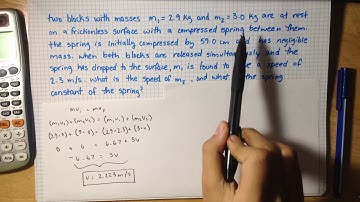 two blocks with masses m₁ = 2.9 kg and m₂ = 3.0 kg are at rest
on a frictionless surface with a compressed spring between them.
the spring is initially compressed by 59.0 cm and has negligible
mass. when both blocks are released simultaneously and the
spring has dropped to the surface, m₁ is found to have a speed of
2.3 m/s. what is the speed of m₂ and what the spring
constant of the spring?
mv₁ = mv₂
(m₁v₁) + (m₂v₂) = (m₁v₁) + (m₂v₂)
0 + 0 = 6.67 + 3v
-6.67 = 3v
v = 2.223 m/s